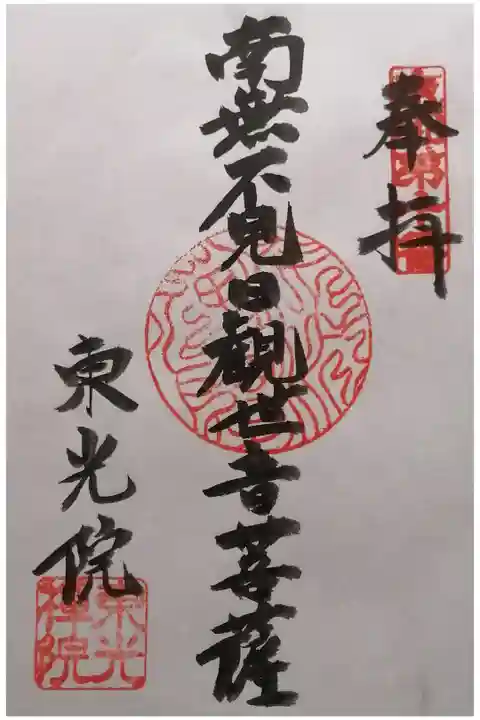 奉拝
南無不見日観世音菩薩
東光院
東光
禅院